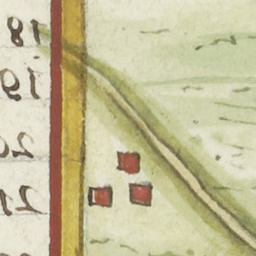 18
19
20
21